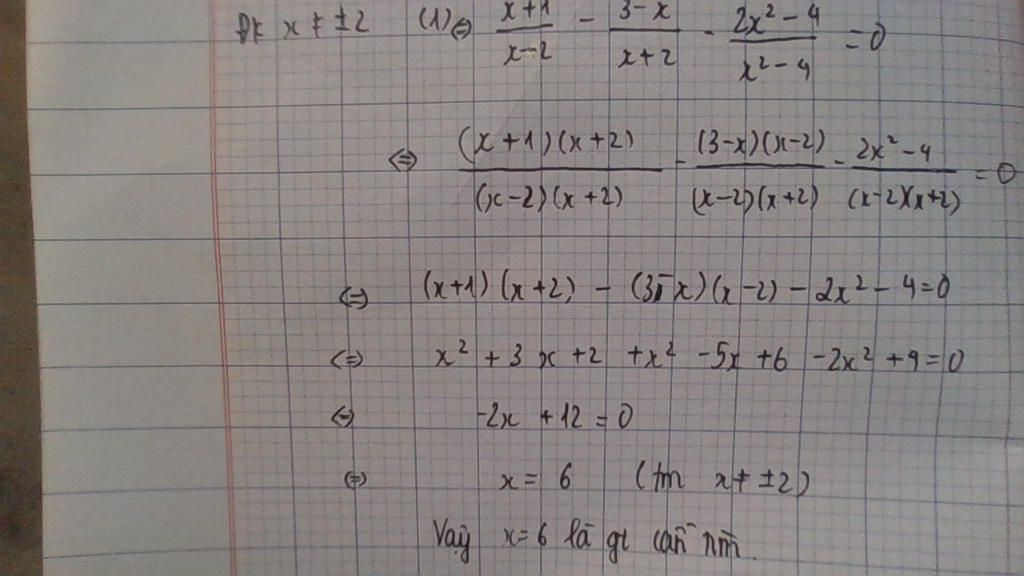 Đk x ≠ ±2 (1) ⇔ (x+1)/(x-2) - (3-x)/(x+2) - (2x² - 4)/(x² - 4) = 0
⇔ ((x+1)(x+2))/((x-2)(x+2)) - ((3-x)(x-2))/((x-2)(x+2)) - (2x² - 4)/((x-2)(x+2)) = 0
⇔ (x+1)(x+2) - (3-x)(x-2) - 2x² - 4 = 0
⇔ x² + 3x + 2 + x² - 5x + 6 - 2x² + 4 = 0
⇔ -2x + 12 = 0
⇔ x = 6 (tm x ≠ ±2)
Vậy x = 6 là gt cần tìm.